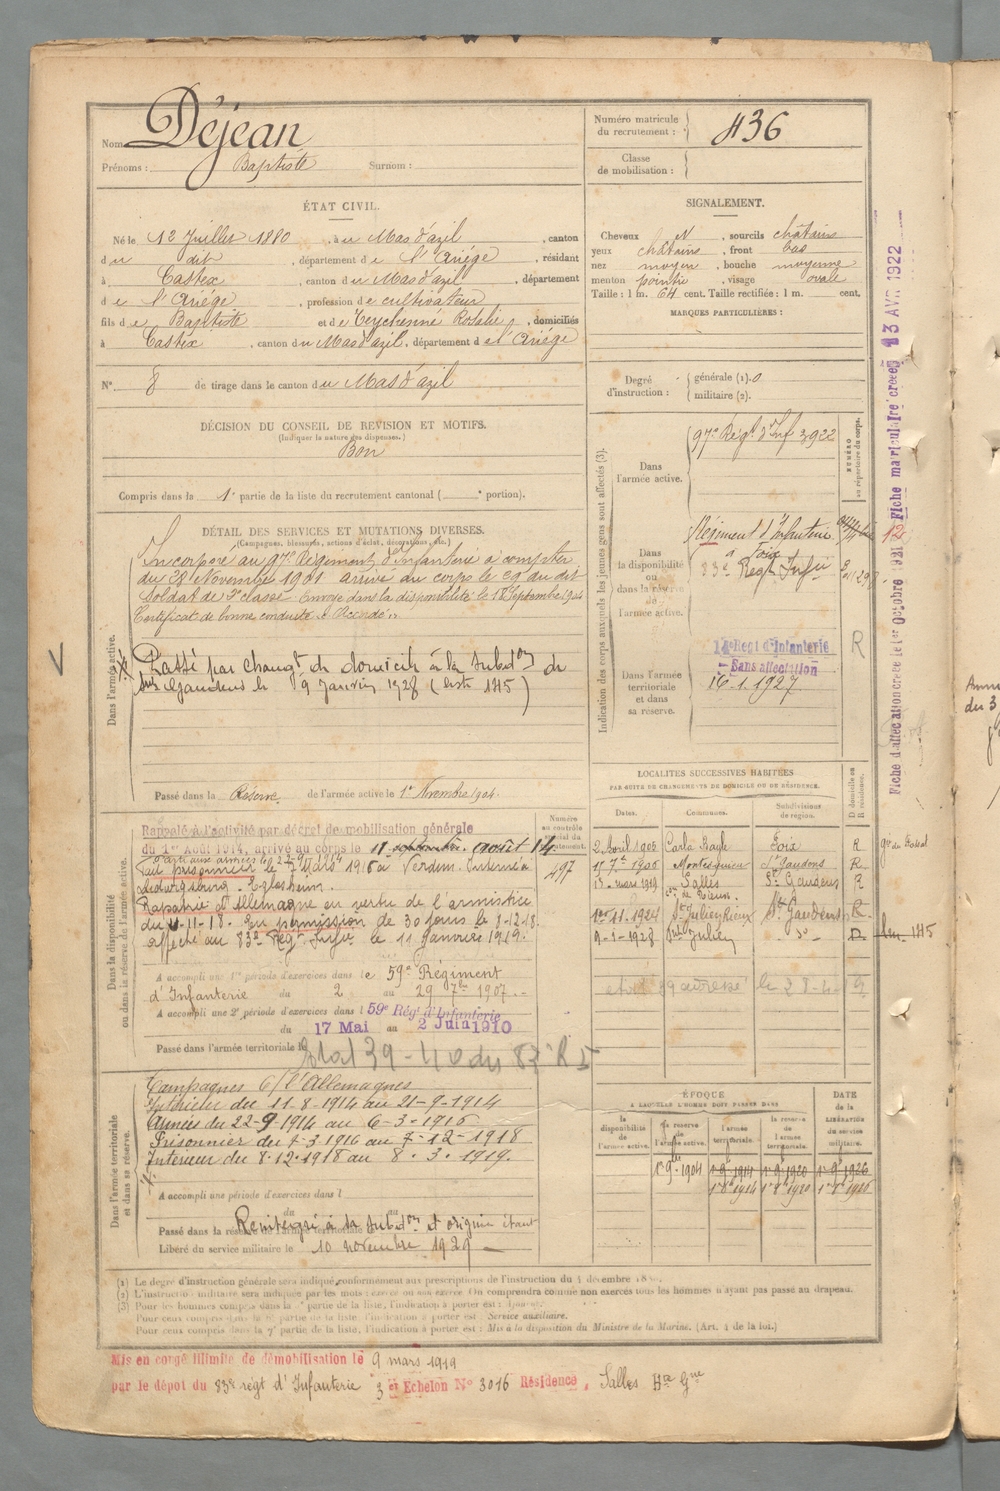 Nom Déjean
Prénoms : Baptiste Surnom :
Numéro matricule du recrutement : 436
Classe de mobilisation :
ÉTAT CIVIL.
Né le 12 Juillet 1880, à u Mas d'azil, canton
d u dit, département d e l'Ariège, résidant
à Castex, canton d u Mas d'azil, département
d e l'Ariège, profession d e cultivateur
fils d e Baptiste et d e Teychenné Rosalie, domiciliés
à Castex, canton d u Mas d'azil, département d e l'Ariège
N° 8 de tirage dans le canton d u Mas d'azil
SIGNALEMENT.
Cheveux et, sourcils châtains
yeux châtains, front bas
nez moyen, bouche moyenne
menton pointu, visage ovale
Taille : 1 m. 64 cent. Taille rectifiée : 1 m. cent.
MARQUES PARTICULIÈRES :
Degré d'instruction : générale (1). 0
militaire (2).
DÉCISION DU CONSEIL DE REVISION ET MOTIFS.
(Indiquer la nature des dispenses.)
Bon
Compris dans la 1e partie de la liste du recrutement cantonal ( e portion).
DÉTAIL DES SERVICES ET MUTATIONS DIVERSES.
(Campagnes, blessures, actions d'éclat, décorations, etc.)
Dans l'armée active.
Incorporé au 97e Régiment d'Infanterie à compter
du 28 Novembre 1901 arrivé au corps le 29 du dit
Soldat de 2e classe. Envoyé dans la disponibilité le 18 Septembre 1904
Certificat de bonne conduite "Accordé".
Passé par changt de domicile à la subdon de
St Gaudens le 9 Janvier 1928 (liste 1115)
Passé dans la Réserve de l'armée active le 1er Novembre 1904.
Indication des corps auxquels les jeunes gens sont affectés (3).
Dans l'armée active.
97e Régt d'Inf 3922
NUMÉRO au répertoire du corps.
Dans la disponibilité ou dans la réserve de l'armée active.
Régiment d'Infanterie
à Foix
83e Regt Infie
Dans l'armée territoriale et dans sa réserve.
Regt d'Infanterie
Sans affectation
16-1.1927
R
Fiche d'affectation créée le 1er Octobre 1921 Fiche matriculaire créée 13 AVR 1922
12
Dans la disponibilité ou dans la réserve de l'armée active.
Numéro au contrôle spécial du recrutement.
497
Rappelé à l'activité par décret de mobilisation générale
du 1er Août 1914, arrivé au corps le 11 septembre août 14
Fait prisonnier le 7 Mars 1916 à Verdun. Interné à
Ludwigsburg. Eglosheim.
Rapatrié d'Allemagne en vertu de l'armistice
du 11-11-18. En permission de 30 jours le 8-12-18.
affecté au 83e Regt Infie le 11 Janvier 1919.
A accompli une 1re période d'exercices dans le 59e Régiment
d'Infanterie du 2 au 29 7bre 1907.
A accompli une 2e période d'exercices dans l 59e Rég' d'Infanterie
du 17 Mai au 2 Juin 1910
Passé dans l'armée territoriale le
LOCALITÉS SUCCESSIVES HABITÉES
PAR SUITE DE CHANGEMENTS DE DOMICILE OU DE RÉSIDENCE.
Dates. Communes. Subdivisions de région. D domicile ou R résidence.
2 Avril 1905 Carla Bayle Foix R
15 7bre 1906 Montesquieu St Gaudens R
13 mars 1919 Salles St Gaudens R
1er 11. 1924 St Julien Rieux St Gaudens R
9-1-1928 St Julien do D
Dans l'armée territoriale et dans sa réserve.
Campagnes c/ l'Allemagnes
Intérieur du 11-8-1914 au 21-9-1914
Armées du 22-9 1914 au 6-3-1916
Prisonnier du 7-3 1916 au 7-12-1918
Intérieur du 8.12.1918 au 8.3.1919.
A accompli une période d'exercices dans l
du au
Passé dans la réserve de l'armée territoriale
Réintégré à sa subdon d'origine étant
Libéré du service militaire le 10 novembre 1929
ÉPOQUE
A LAQUELLE L'HOMME DOIT PASSER DANS
la disponibilité de l'armée active. la réserve de l'armée active. l'armée territoriale. la réserve de l'armée territoriale.
DATE de la LIBÉRATION du service militaire.
1er 9bre 1904 1er 9bre 1914 1er 9bre 1920 1er 9bre 1926
1er 8bre 1914 1er 8bre 1920 1er 8bre 1926
(1) Le degré d'instruction générale sera indiqué conformément aux prescriptions de l'instruction du 4 décembre
(2) L'instruction militaire sera indiquée par les mots : exercé ou non exercé. On comprendra comme non exercés tous les hommes n'ayant pas passé au drapeau.
(3) Pour les hommes compris dans la partie de la liste, l'indication à porter est : Ajourné.
Pour ceux compris dans la 6e partie de la liste, l'indication à porter est : Service auxiliaire.
Pour ceux compris dans la 7e partie de la liste, l'indication à porter est : Mis à la disposition du Ministre de la Marine. (Art. 4 de la loi.)
Mis en congé illimité de démobilisation le 9 mars 1919
par le dépôt du 83e régt d'Infanterie 3 e Echelon N° 3016 Résidence, Salles Hte Gne